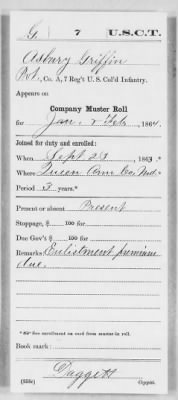 G | 7 | U.S.C.T.
Asbury Griffin
Pvt., Co. A, 7 Reg't U. S. Col'd Infantry.
Appears on
Company Muster Roll
for Jan. & Feb., 1864.
Joined for duty and enrolled:
When Sept 23, 1863.*
Where Queen Ann Co. Md.
Period 3 years.*
Present or absent Present
Stoppage, $ 100 for
Due Gov't $ 100 for
Remarks: Enlistment premium
due.
*See enrollment on card from muster-in roll.
Book mark:
Daggett
(358c) Copyist.